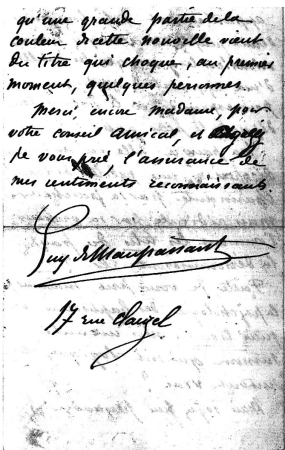 qu'une grande partie de la
couleur de cette nouvelle vient
du titre qui choque, au premier
moment, quelques personnes.
Merci encore madame, pour
votre conseil amical, et
je vous prie, l'assurance de
mes sentiments reconnaissants.
Guy de Maupassant
17 rue Clauzel